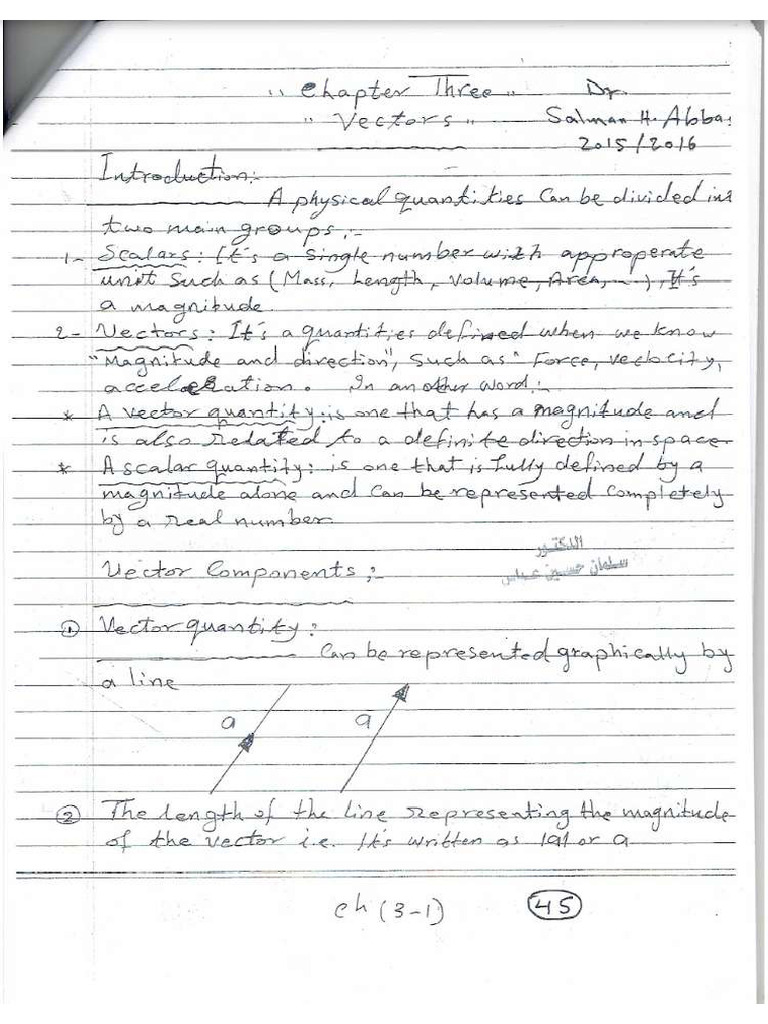 " Chapter Three " Dr.
" Vectors " Salman H. Abbas
2015/2016
Introduction:-
A physical quantities Can be divided int
two main groups:-
1- Scalars: It's a single number with approperate
unit Such as (Mass, Length, Volume, Area, ...), It's
a magnitude.
2- Vectors: It's a quantities defined when we know
"Magnitude and direction", Such as " Force, velocity,
acceleration. In an other word:-
* A vector quantity: is one that has a magnitude and
is also related to a definite direction in space.
* A scalar quantity: is one that is fully defined by a
magnitude alone and can be represented completely
by a real number.
الدكتور
سلمان حسين عباس
Vector Components:-
① Vector quantity:
Can be represented graphically by
a line
a a
② The length of the line representing the magnitude
of the vector i.e. It's written as |a| or a
ch (3-1) 45